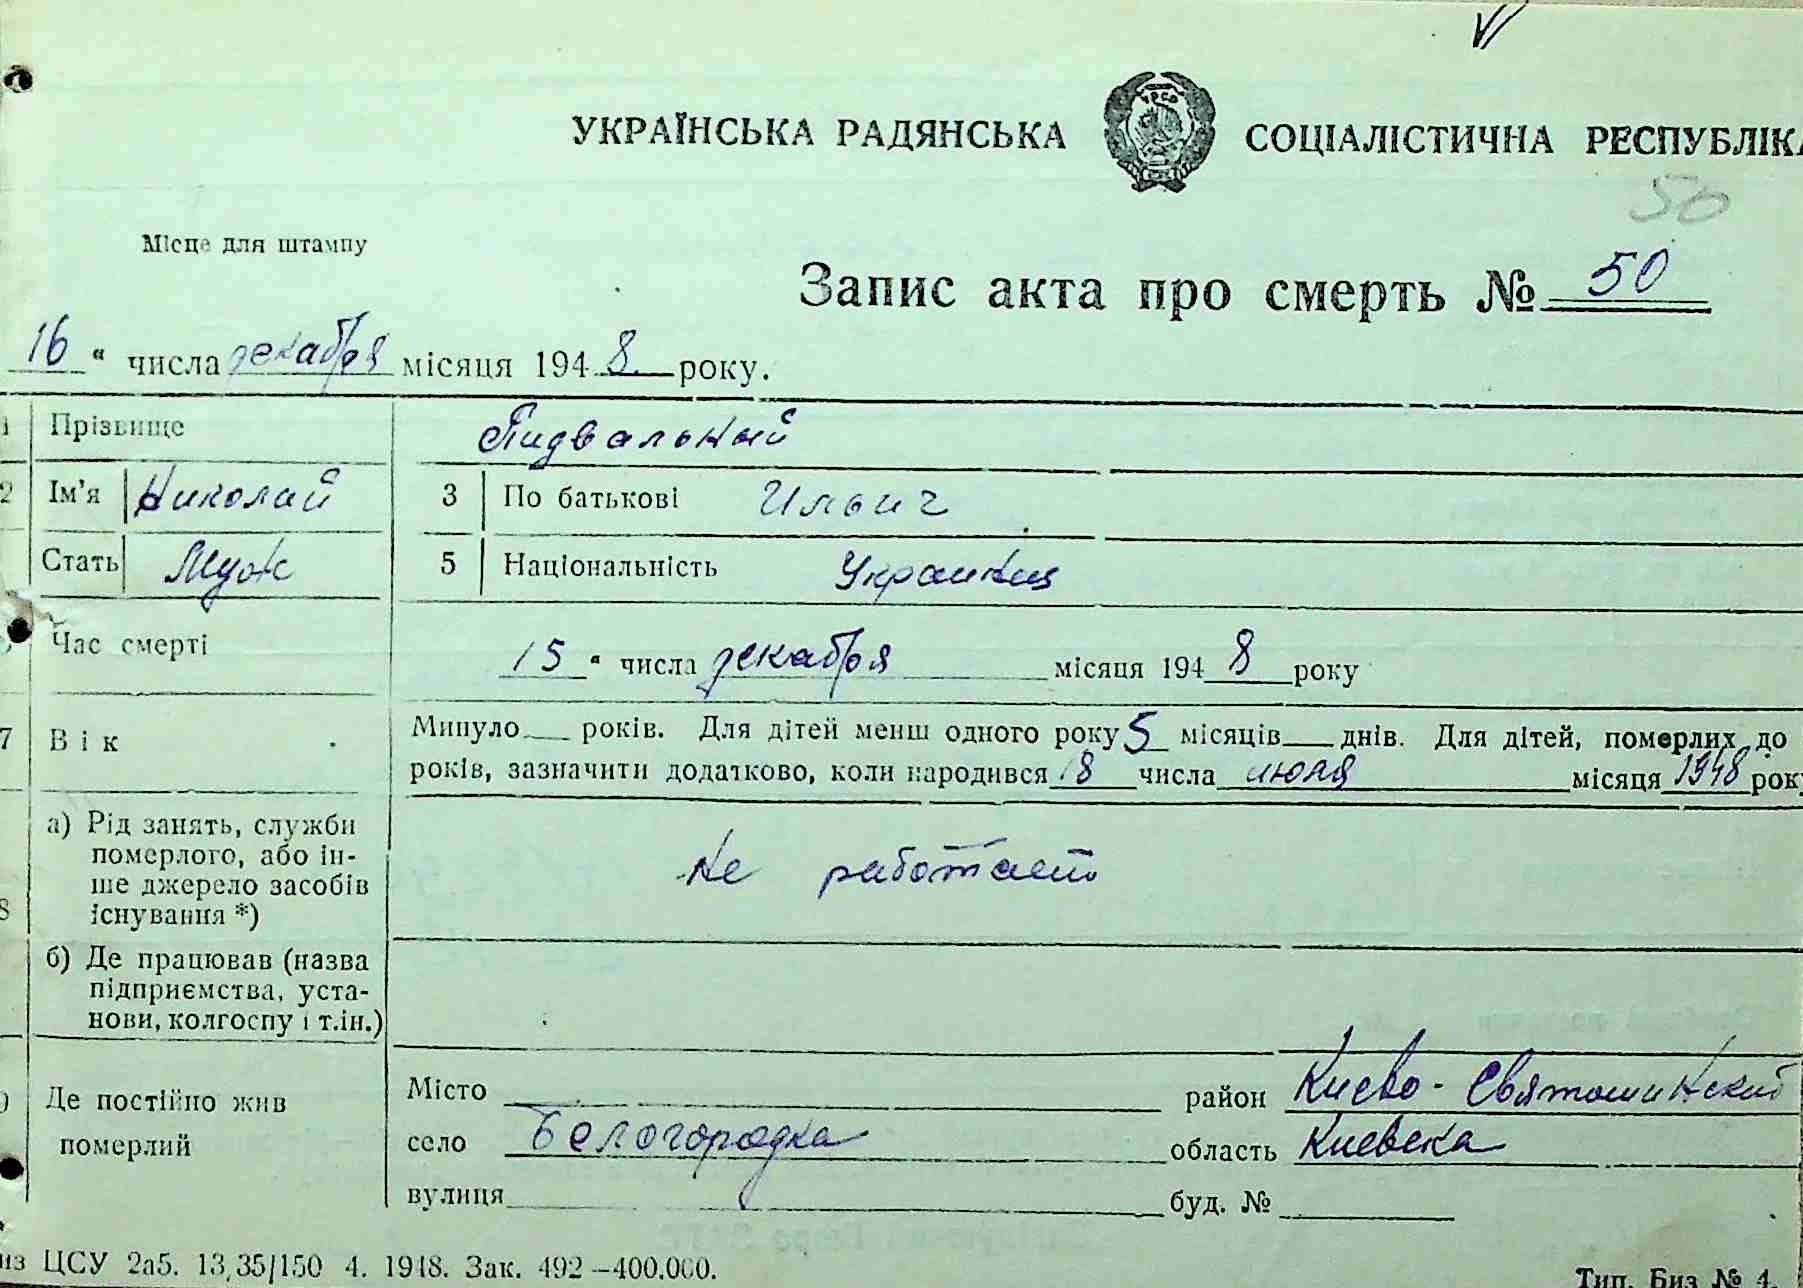 УКРАЇНСЬКА РАДЯНСЬКА СОЦІАЛІСТИЧНА РЕСПУБЛІКА
50
Місце для штампу
Запис акта про смерть № 50
16 " числа декабря місяця 1948 року.
1 Прізвище Пидвальный
2 Ім'я Николай 3 По батькові Ильич
Стать Муж 5 Національність Украинец
Час смерті 15 " числа декабря місяця 1948 року
7 Вік Минуло __ років. Для дітей менш одного року 5 місяців __ днів. Для дітей, померлих до
років, зазначити додатково, коли народився 18 числа июля місяця 1948 року
8 а) Рід занять, служби
померлого, або ін-
ше джерело засобів
існування *)
Не работает
б) Де працював (назва
підприємства, уста-
нови, колгоспу і т.ін.)
Де постійно жив
померлий
Місто район Киево-Святошинский
село Белогородка область Киевска
вулиця буд. №
из ЦСУ 2а5. 13,35/150 4. 1948. Зак. 492—400.000. Тип. Биз № 4.